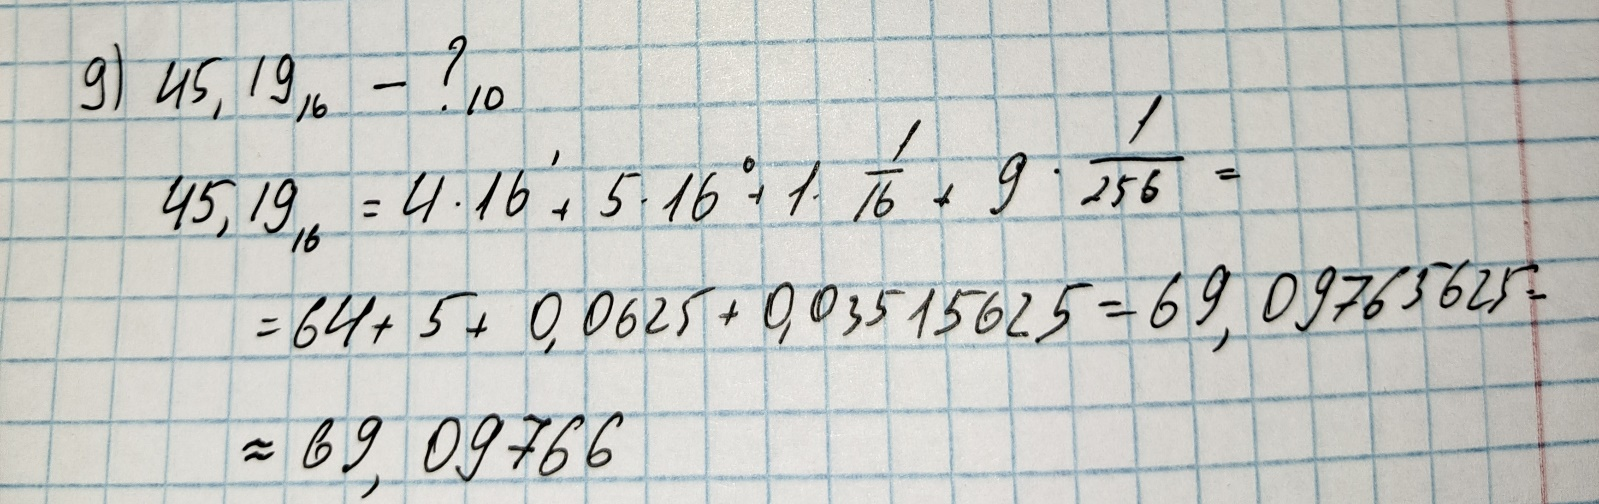 9) 45,19₁₆ - ?₁₀
45,19₁₆ = 4·16¹ + 5·16⁰ + 1·1/16 + 9·1/256 =
= 64 + 5 + 0,0625 + 0,03515625 = 69,09765625 =
≈ 69,09766